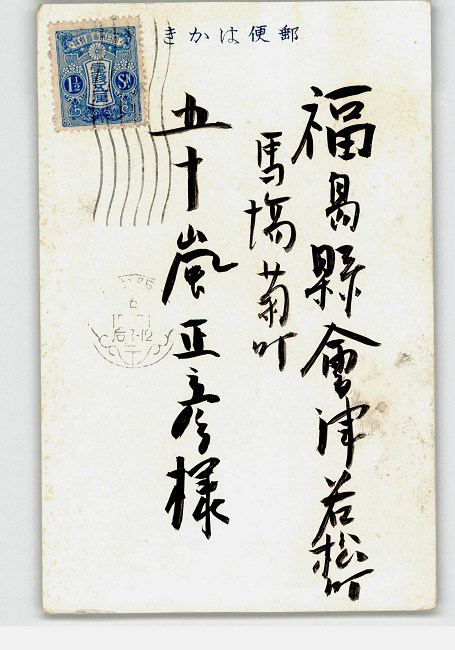 郵便はかき
福島縣會津若松町
馬場菊町
五十嵐正彦様
1½ Sn